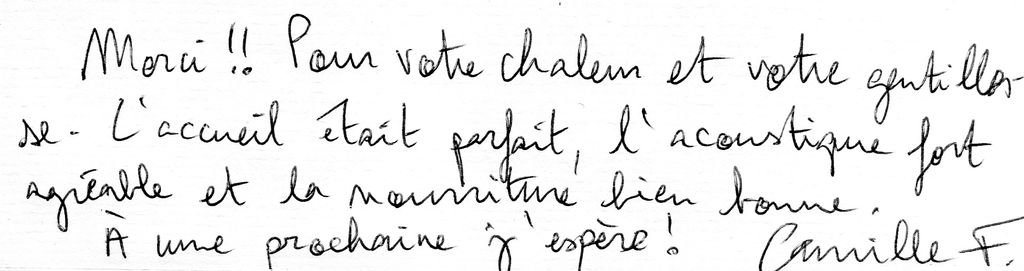 Merci !! Pour votre chaleur et votre gentilles-
se. L'accueil était parfait, l'acoustique fort
agréable et la nourriture bien bonne.
À une prochaine j'espère ! Camille F.